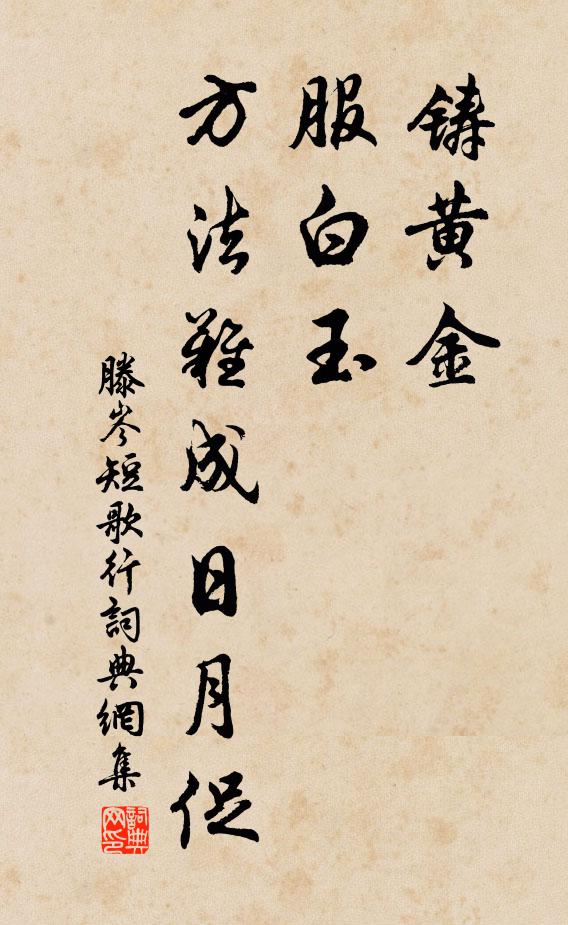 鑄黃金
服白玉
方法難成日月促
滕岑短歌行詞典網集
詞典网印